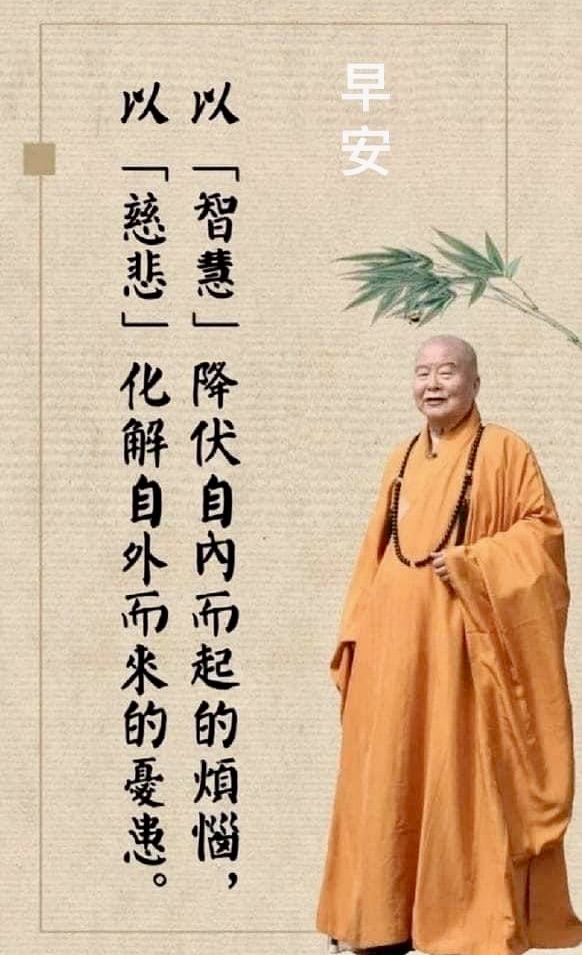 早安
以「智慧」降伏自內而起的煩惱，
以「慈悲」化解自外而來的憂患。